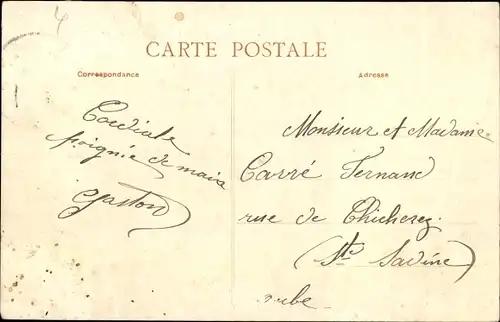 CARTE POSTALE
Correspondance
Cordiale
poignée de main
Gaston
Adresse
Monsieur et Madame
Carré Fernand
rue de Chicherey
(Ste Savine)
Aube